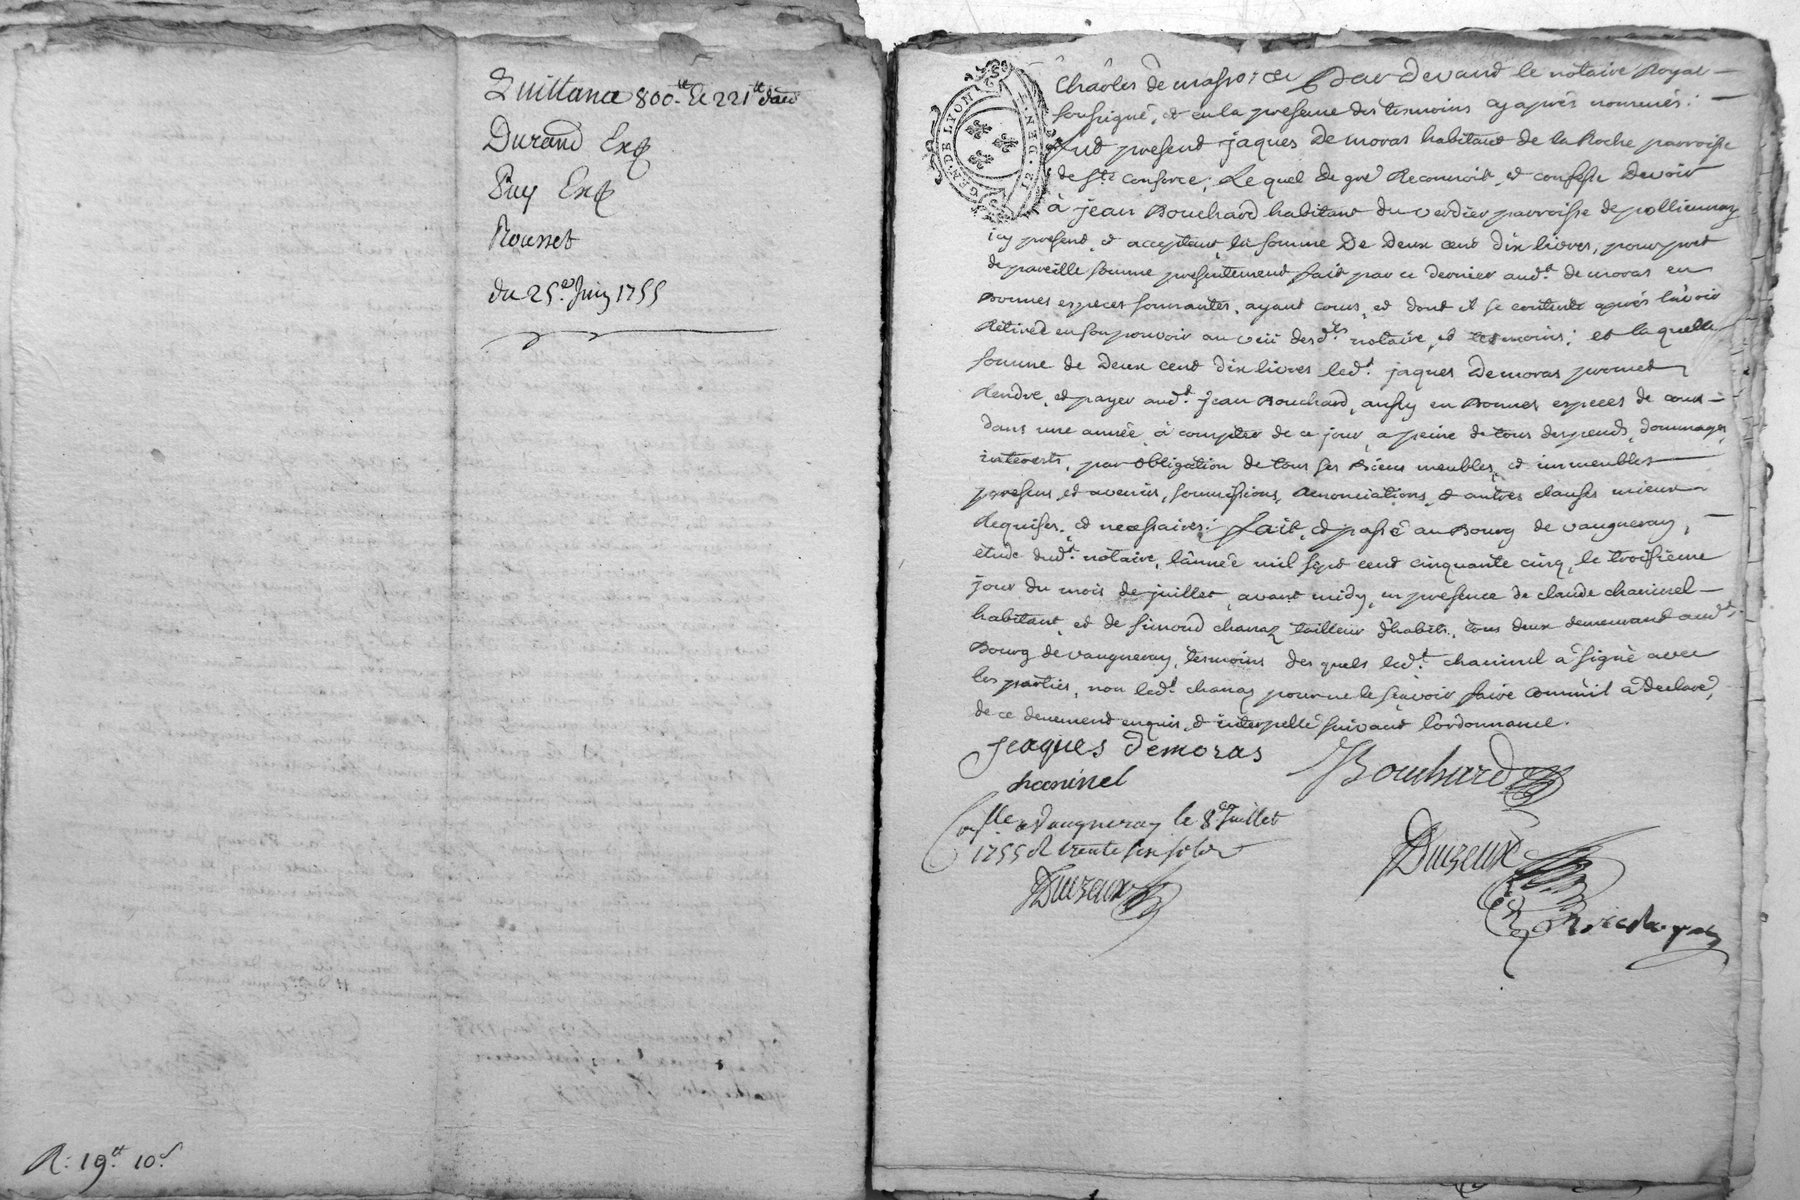 Quittance 800.tt & 221tt
Durand Exp
Puy Exp
Rousset
du 25.e Juin 1755
R: 19.tt 10.s
GEN. DE LYON
Par devant le notaire Royal
soussigné, et en la presence des tesmoins cy aprés nommés:
fut present jaques Demoras habitant de la Roche parroisse
de ste consorce; Lequel de gré Reconnoit, et confesse devoir
à jean Bouchard habitant du verdier parroisse de pollionnay
icy present, et acceptant la somme De Deux cent dix livres, pour pret
de pareille somme presentement fait par ce dernier aud.t de moras en
Bonnes especes sonnantes, ayant cours, et dont il se contente aprés l'avoir
Retirée en son pouvoir au veü desd.ts notaire, et tesmoins; et laquelle
somme de Deux cent Dix livres led.t jaques Demoras promet
Rendre, et payer aud.t Jean Bouchard, aussy en Bonnes especes de cours
dans une année à compter de ce jour, a peine de tous despends, dommages,
interests, par obligation de tous ses Biens meubles, et immeubles
presens, et avenir, soumissions, Renonciations, & autres clauses mieux
Requises, et necessaires: fait, et passé au Bourg de vaugneray,
étude dud.t notaire, l'année mil sept cent cinquante cinq, le troisieme
jour du mois de juillet, avant midy, en presence de claude chaninel
habitant, et de simond chanaz tailleur d'habits, tous deux demeurant aud.t
Bourg de vaugneray, tesmoins des quels led.t chaninel à signé avec
les parties, non led.t chanaz pour ne le sçavoir faire comm'il a declaré,
de ce deuement enquis, & interpellé suivant l'ordonnance.
jeaques Demoras
Bouchard
chaninel
Con.lle a Vaugneray le 8.e Juillet
1755 R trente six sols
Duizeux
Duizeux